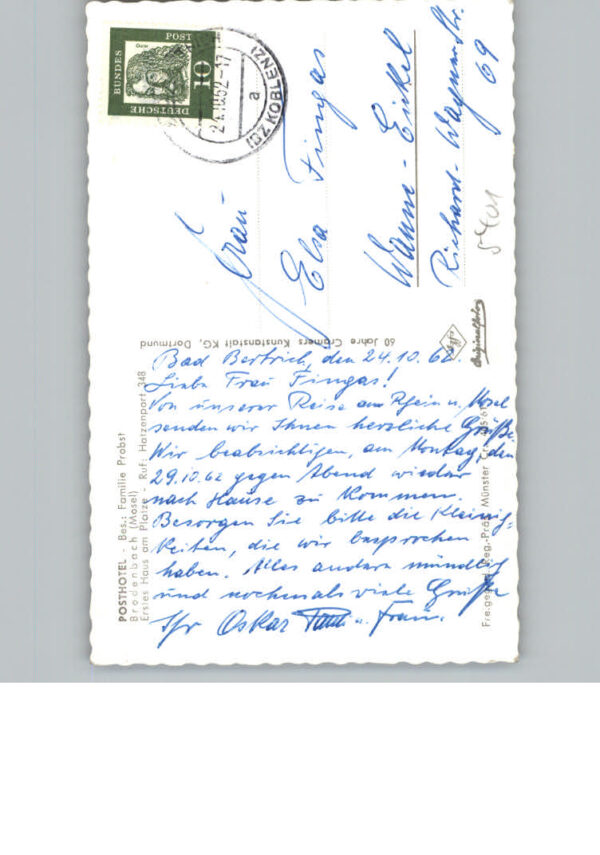 DEUTSCHE
BUNDES
POST
10
24.10.62-17
a
(BZ KOBLENZ)
Frau
Elsa Fingas
Wanne-Eickel
Richard-Wagner-Str.
69
60 Jahre Cramers Kunstanstalt KG, Dortmund
Originalfoto
POSTHOTEL - Bes.: Familie Probst
Brodenbach (Mosel)
Erstes Haus am Platze - Ruf: Hatzenport 348
Bad Bertrich, den 24.10.62.
Liebe Frau Fingas!
Von unserer Reise am Rhein u. Mosel
senden wir Ihnen herzliche Grüße.
Wir beabsichtigen, am Montag, den
29.10.62 gegen Abend wieder
nach Hause zu kommen.
Besorgen Sie bitte die Kleinig-
keiten, die wir besprochen
haben. Alles andere mündlich
und nochmals viele Grüße
Ihr Oskar u. Frau.
Freigegeben Reg.-Präs. Münster